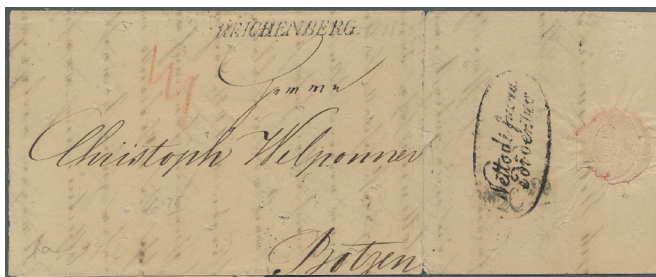 REICHENBERG.
Herrn
Christoph Welponner
Botzen
Netto di fuora
E di dentro